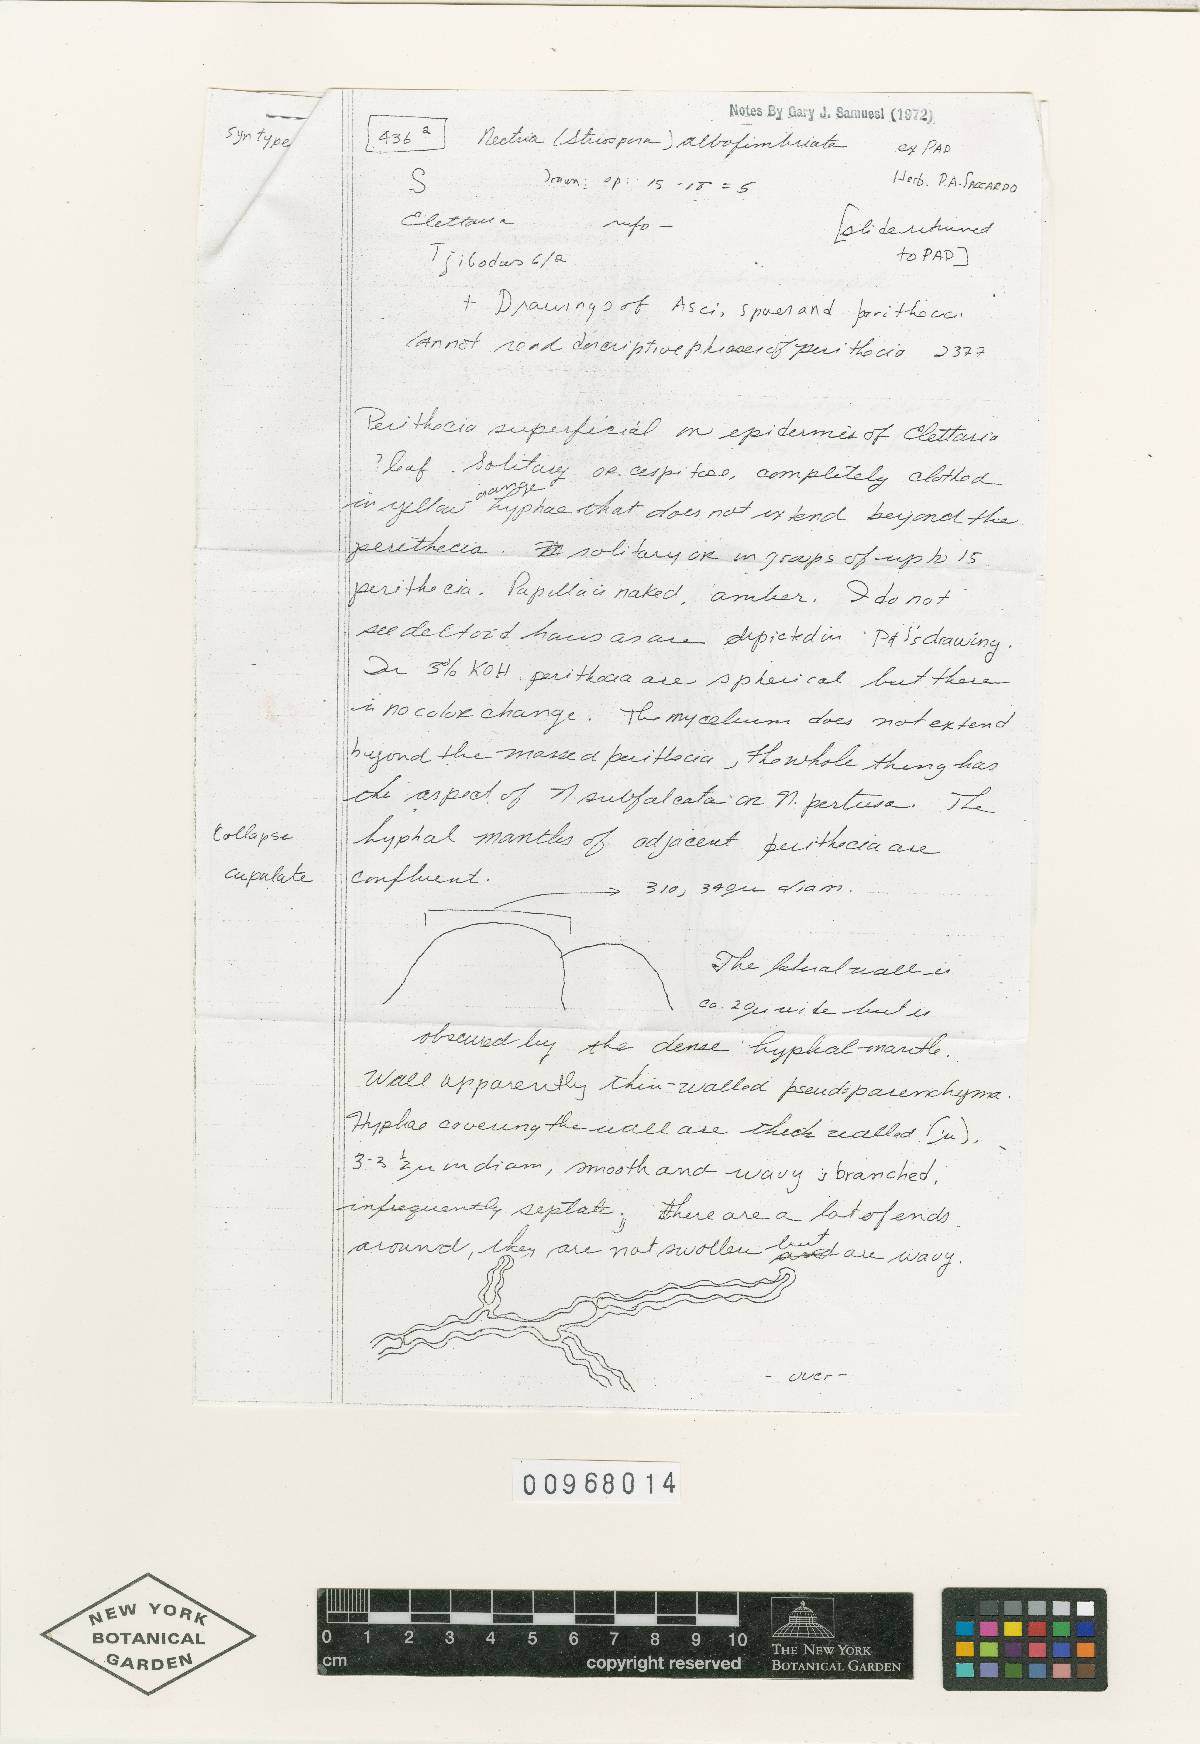 Notes By Gary J. Samuesl (1972)
Syntype
436 a
Nectria (Stilbospora) albofimbriata
ex PAD
S
Drawn: sp: 15-18 = 5
Herb. P.A. SACCARDO
Elettaria
[slide returned
Tjibodas 6/a
to PAD]
+ Drawings of Asci, spores and perithecia.
Cannot read descriptive phrases of perithecia 2377
Perithecia superficial on epidermis of Elettaria
? leaf. Solitary or cespitose, completely clothed
in yellow orange hyphae that does not extend beyond the
perithecia. solitary or in groups of up to 15
perithecia. Papilla is naked, amber. I do not
see deltoid hairs as are depicted in PAS's drawing.
In 3% KOH perithecia are spherical but there
is no color change. The mycelium does not extend
beyond the massed perithecia, the whole thing has
the aspect of N subfalcata or N. pertusa. The
Collapse
cupulate
hyphal mantles of adjacent perithecia are
confluent.
310, 349µ diam.
The lateral wall is
ca. 29µ wide but is
obscured by the dense hyphal mantle.
Wall apparently thin-walled pseudoparenchyma.
Hyphae covering the wall are thick walled (1µ),
3-3 ½µ in diam, smooth and wavy & branched,
infrequently septate; there are a lot of ends
around, they are not swollen but are wavy.
- over -
00968014
NEW YORK
BOTANICAL
GARDEN
0 1 2 3 4 5 6 7 8 9 10
cm
copyright reserved
THE NEW YORK
BOTANICAL GARDEN